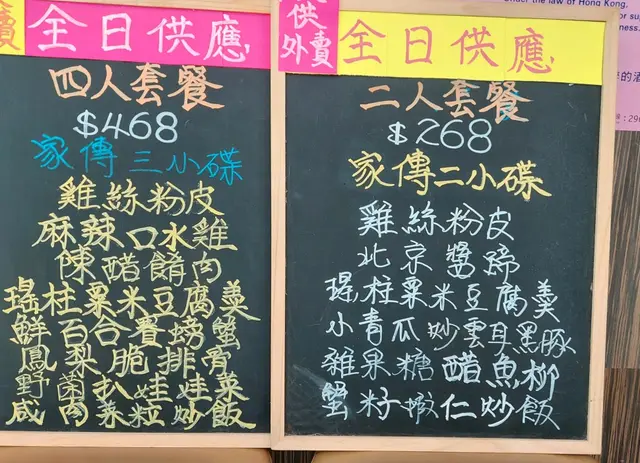 全日供應
四人套餐
$468
家傳三小碟
雞絲粉皮
麻辣口水雞
陳醋餚肉
瑤柱粟米豆腐羹
鮮百合賽螃蟹
鳳梨脆排骨
野菌扒娃娃菜
咸肉菜粒炒飯
供
外賣
全日供應
二人套餐
$268
家傳二小碟
雞絲粉皮
北京醬蹄
瑤柱粟米豆腐羹
小青瓜炒雲耳黑豚
雜果糖醋魚柳
蟹籽蝦仁炒飯
under the law of Hong Kong,
的酒